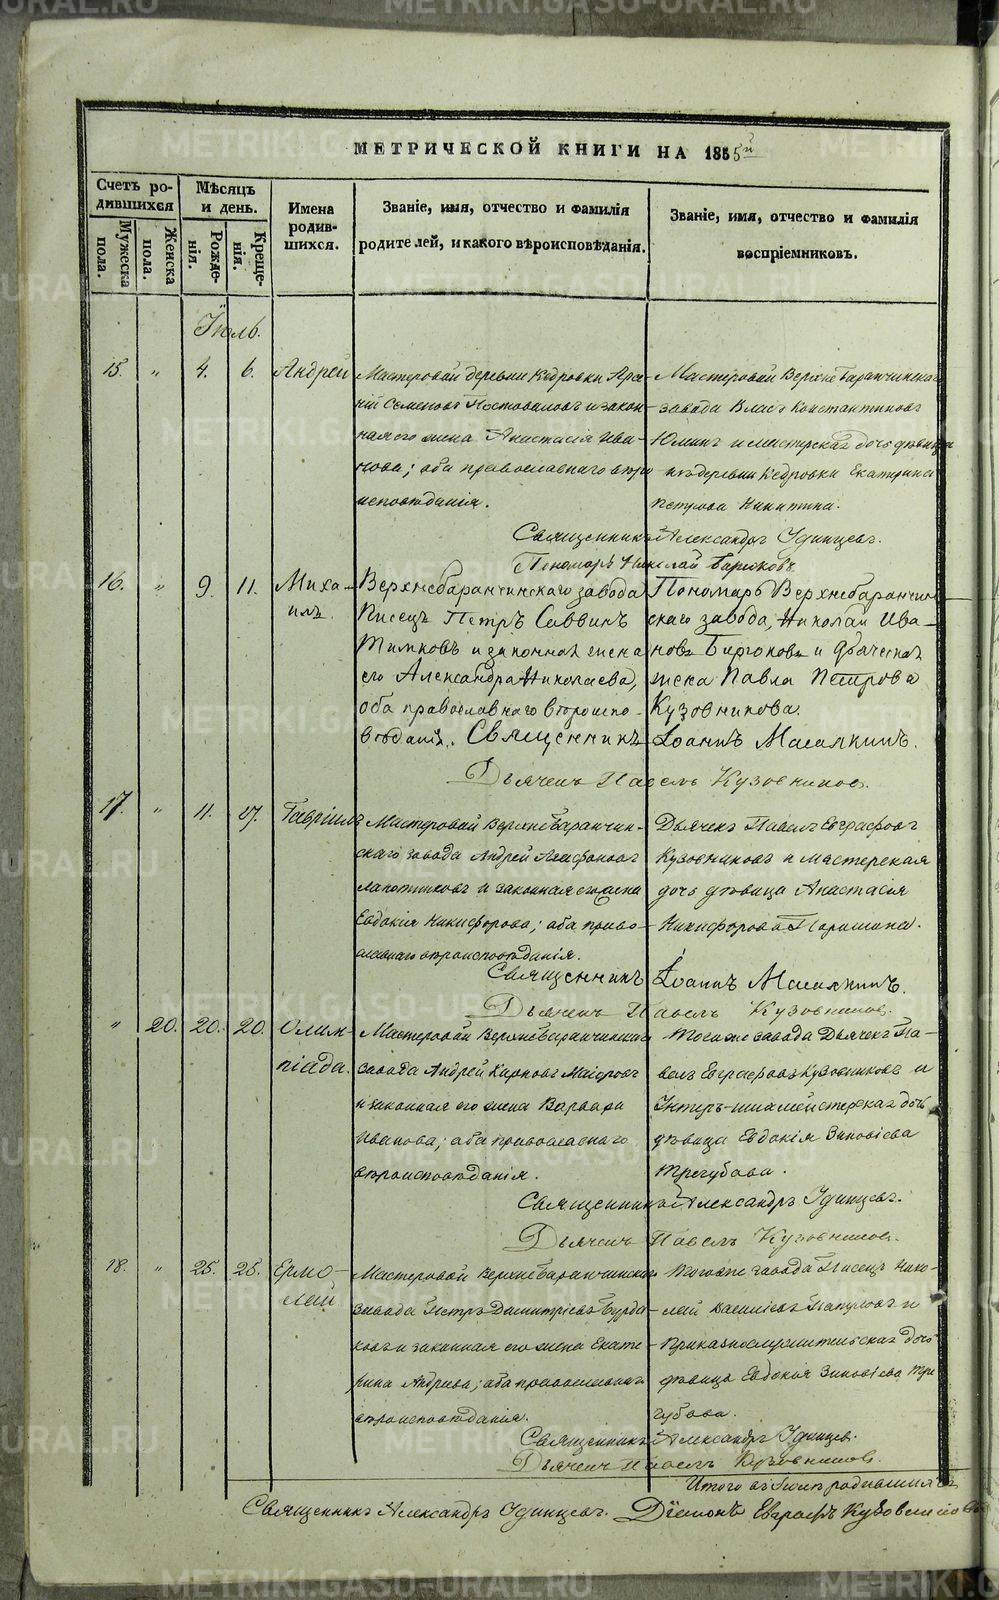 METRIKI.GASO-URAL.RU
МЕТРИЧЕСКОЙ КНИГИ НА 1855й
Счетъ родившихся
Мужеска пола.
Женска пола.
Мѣсяцъ и день.
Рожденія.
Крещенія.
Имена родившихся.
Званіе, имя, отчество и фамилія родителей, и какого вѣроисповѣданія.
Званіе, имя, отчество и фамилія воспріемниковъ.
Іюль.
15. „ 4. 6. Андрей
Мастеровой деревни Кедровки
Семеновъ Постоваловъ и закон-
ная его жена Анастасія Ива-
нова; оба православнаго вѣро-
исповѣданія.
Мастеровой Верхнебаранчинскаго
завода Власъ Константиновъ
и мастерская дочь дѣвица
изъ деревни Кедровки Екатерина
Петрова Никитина.
Священникъ Александръ Удинцевъ.
Пономарь Николай Бирюковъ
16. „ 9. 11. Миха-
илъ.
Верхнебаранчинскаго завода
Писецъ Петръ Саввинъ
и законная жена
его Александра Николаева,
оба православнаго вѣроиспо-
вѣданія.
Пономарь Верхнебаранчин-
скаго завода, Николай Ива-
новъ Бирюковъ и дьяческая
жена Павла Петрова
Кузовникова.
Священникъ Іоаннъ Масалкинъ.
Дьячекъ Павелъ Кузовниковъ.
17. „ 11. 17. Гавріилъ
Мастеровой Верхнебаранчин-
скаго завода Андрей Агафоновъ
Лапотниковъ и законная его жена
Евдокія Никифорова; оба право-
славнаго вѣроисповѣданія.
Дьячекъ Павелъ Евграфовъ
Кузовниковъ и мастерская
дочь дѣвица Анастасія
Никифорова Паршина.
Священникъ Іоаннъ Масалкинъ.
Дьячекъ Павелъ Кузовниковъ.
„ 20. 20. 20. Олим-
піада.
Мастеровой Верхнебаранчинскаго
завода Андрей Карповъ Маіоровъ
и законная его жена Варвара
Иванова; оба православнаго
вѣроисповѣданія.
Тогоже завода Дьячекъ Па-
велъ Евграфовъ Кузовниковъ и
Унтеръ-шихмейстерская дочь
дѣвица Евдокія Зиновіева
Трегубова.
Священникъ Александръ Удинцевъ.
Дьячекъ Павелъ Кузовниковъ.
18. „ 25. 25. Ермо-
лай
Мастеровой Верхнебаранчинскаго
завода Петръ Димитріевъ Бурда-
ковъ и законная его жена Екате-
рина Андреева; оба православнаго
вѣроисповѣданія.
Тогоже завода Писецъ Нико-
лай и
Приказнослужительская дочь
дѣвица Евдокія Зиновіева Тре-
губова.
Священникъ Александръ Удинцевъ.
Дьячекъ Павелъ Кузовниковъ.
Итого въ Іюлѣ родившихся
Священникъ Александръ Удинцевъ. Діаконъ Евграфъ Кузовниковъ